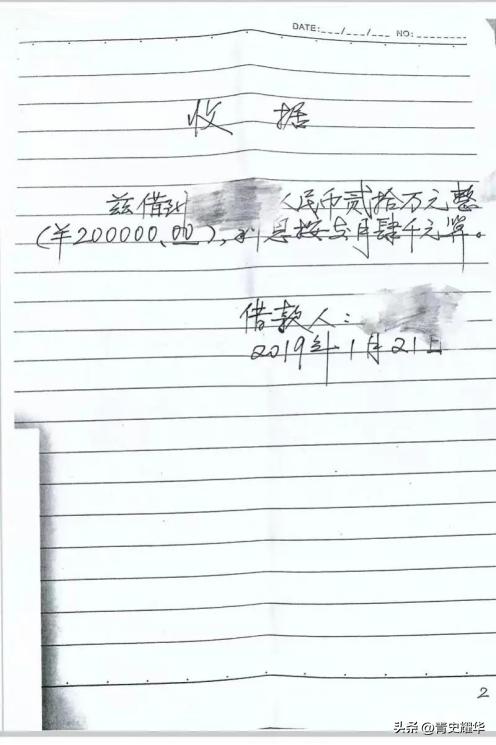 DATE:___/___/___ NO:______
收 据
兹借到 人民币贰拾万元整
(￥200000.00),利息按每月肆千元算。
借款人：
2019年1月21日
2
头条 @青史耀华